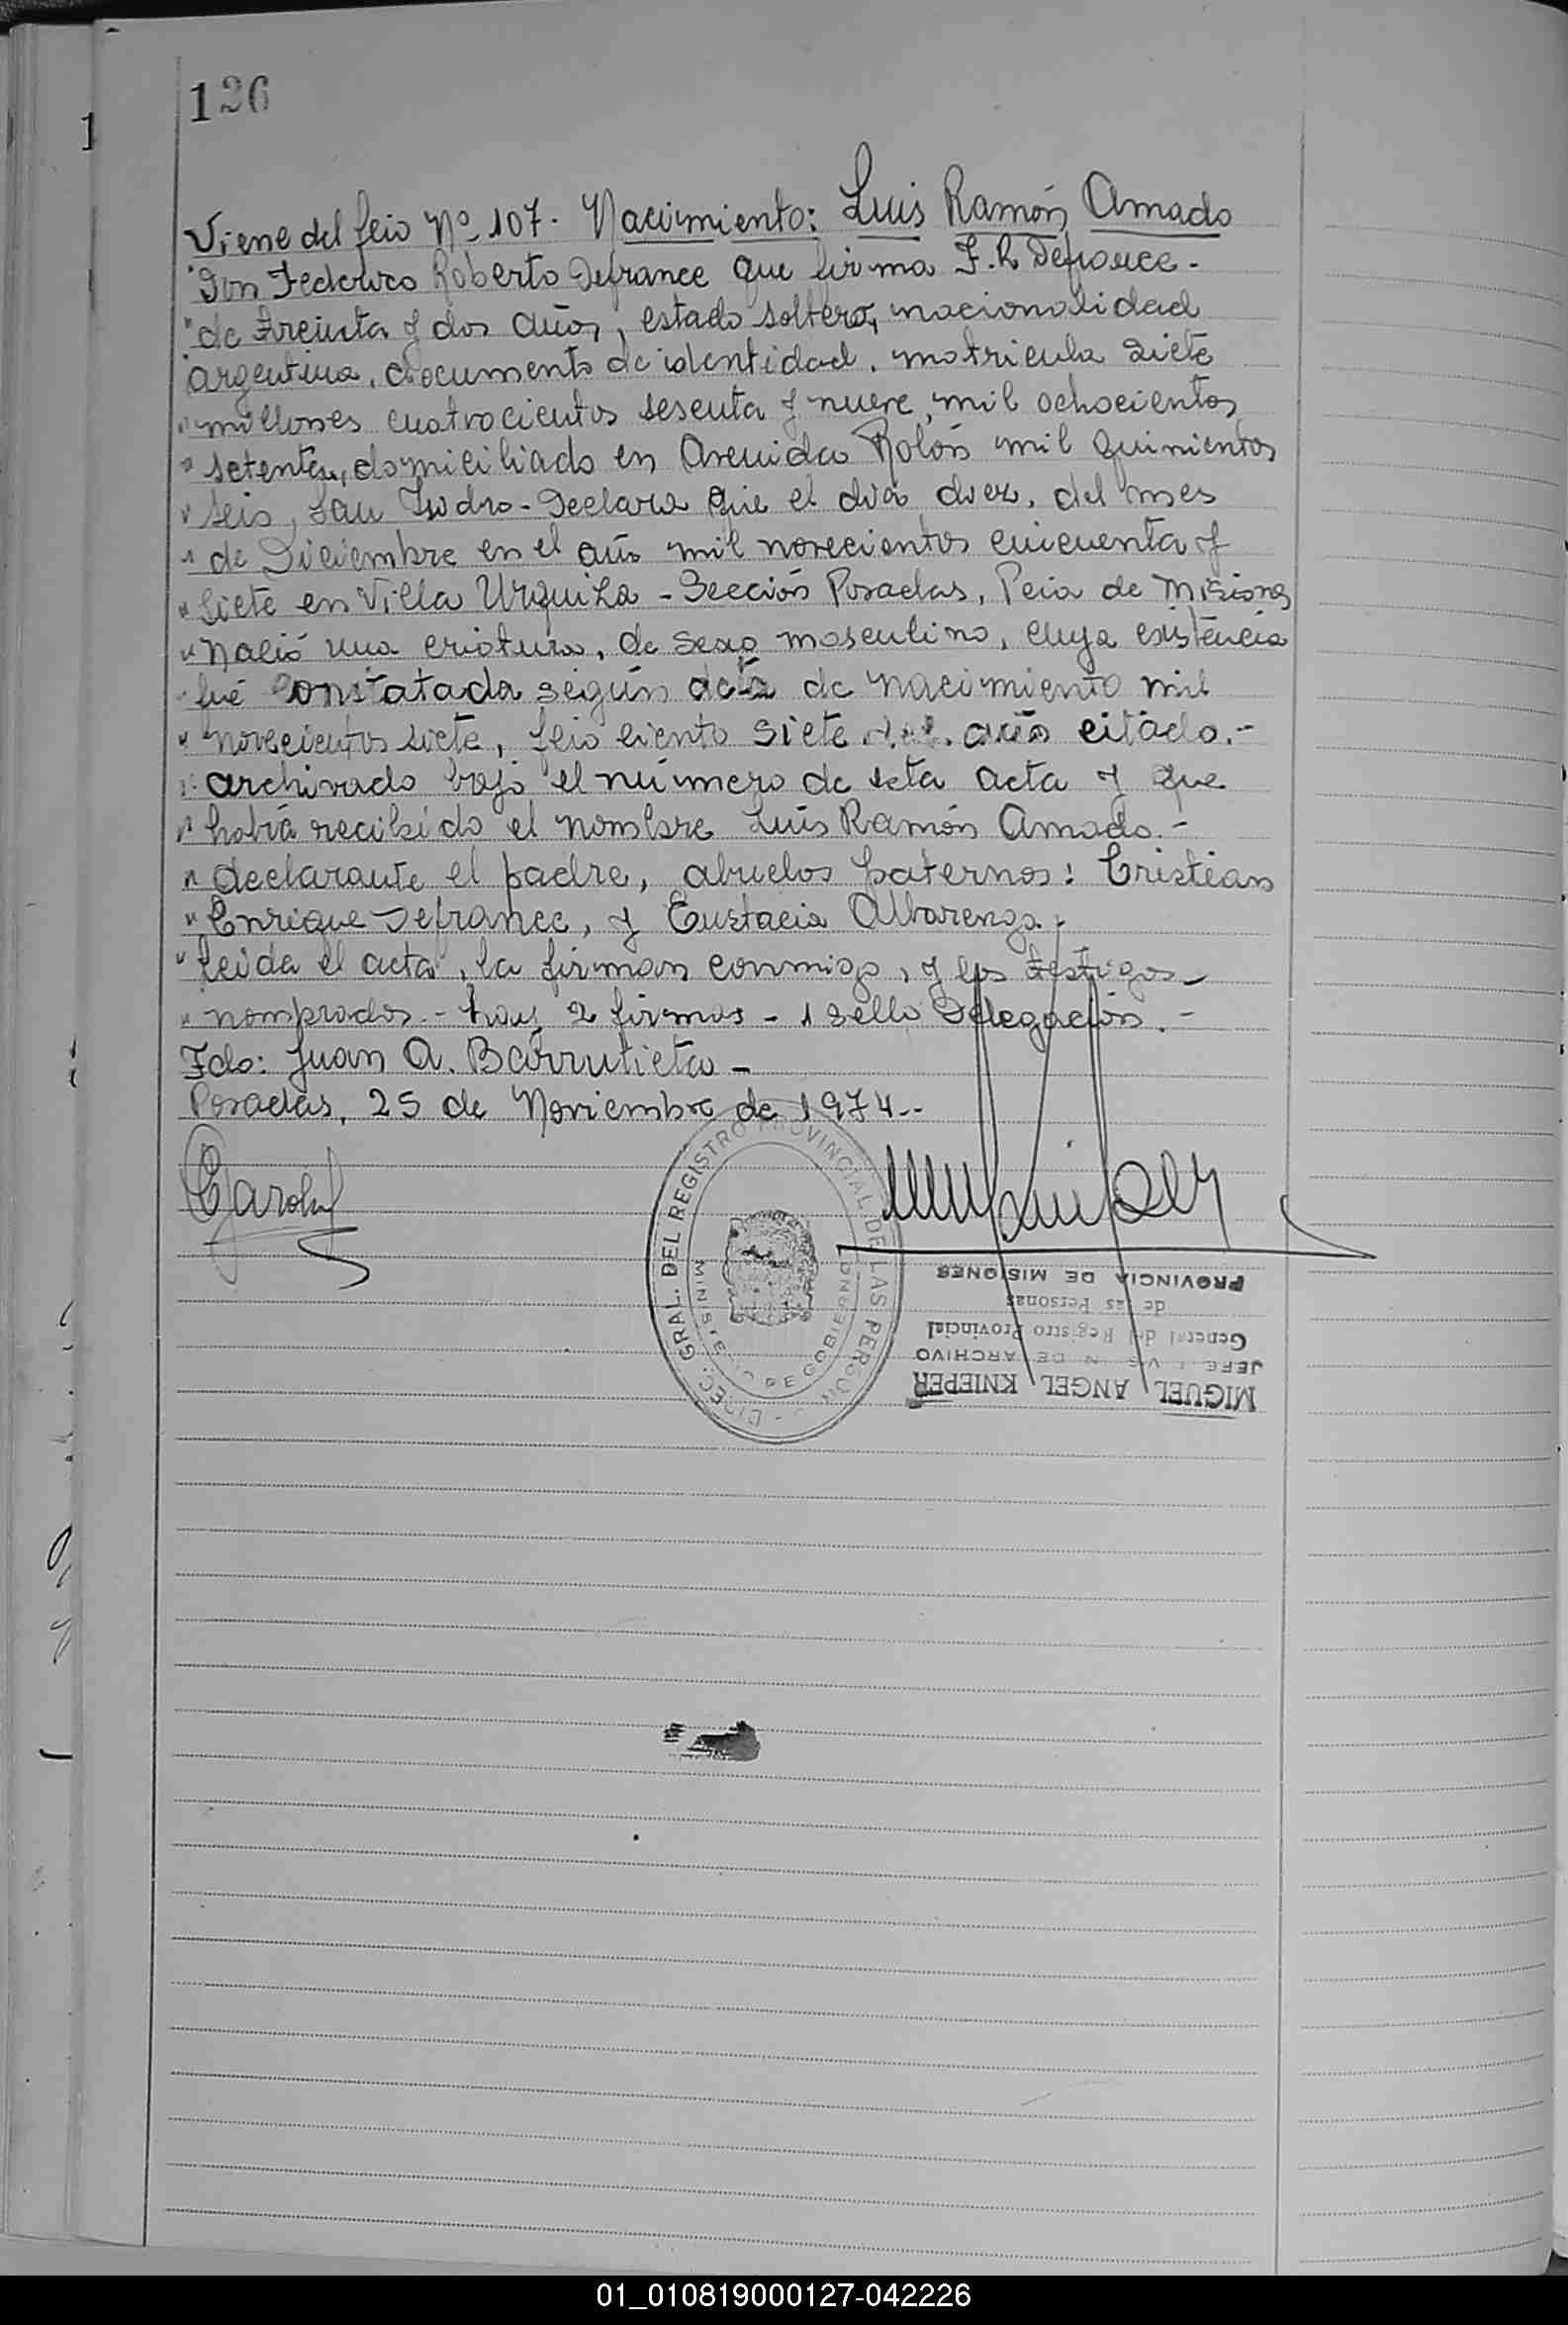 126
Viene del feio Nº 107. Nacimiento: Luis Ramón Amado
"Don Federico Roberto Defrance que firma F. R Defrance.-
"de treinta y dos años, estado soltero, nacionalidad
"argentina, documento de identidad. matricula siete
"millones cuatrocientos sesenta y nueve, mil ochocientos
"setenta, domiciliado en Avenida Rolón mil quinientos
"seis, San Isidro - Declara que el día diez, del mes
"de Diciembre en el año mil novecientos cincuenta y
"siete en Villa Urquiza - Sección Posadas, Pcia de Misiones
"Nació una criatura, de sexo masculino, cuya existencia
"fué constatada según acta de nacimiento mil
"novecientos siete, feio ciento siete del año citado.-
"archivado bajo el número de seta acta y que
"había recibido el nombre Luis Ramón Amado.-
"declarante el padre, abuelos paternos: Cristian
"Enrique Defrance, y Eustacia Albarenga.
"Leida el acta, la firman conmigo, y los testigos-
"nombrados.- hay 2 firmas - 1 sello Delegación.-
Fdo: Juan A. Barrutieta -
Posadas, 25 de Noviembre de 1974.-
DIREC. GRAL. DEL REGISTRO PROVINCIAL DE LAS PERSONAS
MINISTERIO DE GOBIERNO
MIGUEL ANGEL KNIEPER
JEFE DE ARCHIVO
General del Registro Provincial
de las Personas
PROVINCIA DE MISIONES
01_010819000127-042226